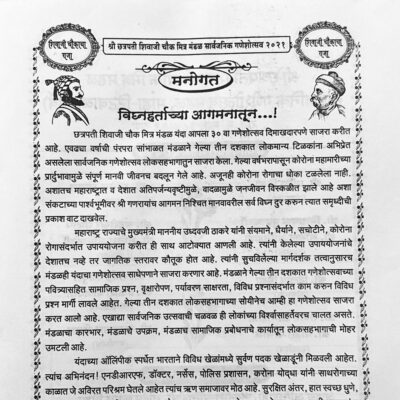 शिवाजी चौकाचा राजा
श्री छत्रपती शिवाजी चौक मित्र मंडळ सार्वजनिक गणेशोत्सव २०२१
शिवाजी चौकाचा राजा
मनोगत
विघ्नहर्ताच्या आगमनातून...!
छत्रपती शिवाजी चौक मित्र मंडळ यंदा आपला ३० वा गणेशोत्सव दिमाखदारपणे साजरा करीत
आहे. एवढ्या वर्षाची परंपरा सांभाळत मंडळाने गेल्या तीन दशकात लोकमान्य टिळकांना अभिप्रेत
असलेला सार्वजनिक गणेशोत्सव लोकसहभागातुन साजरा केला. गेल्या वर्षभरापासून कोरोना महामारीच्या
प्रार्दुभावामुळे संपूर्ण मानवी जीवनच बदलून गेले आहे. अजूनही कोरोना रोगाचा धोका टळलेला नाही.
अशातच महाराष्ट्रात व देशात अतिपर्जन्यवृष्टीमुळे, वादळामुळे जनजीवन विस्कळीत झाले आहे अशा
संकटाच्या पार्श्वभूमीवर श्री गणरायांच आगमन निश्चित मानवावरील सर्व विघ्न दुर करून त्यात समृध्दीची
प्रकाश वाट दाखवेल.
महाराष्ट्र राज्याचे मुख्यमंत्री माननीय उध्दवजी ठाकरे यांनी संयमाने, धैर्याने, सचोटीने, कोरोना
रोगासंदर्भात उपाययोजना करीत ही साथ आटोक्यात आणली आहे. त्यांनी केलेल्या उपाययोजनांचे
देशातच नव्हे तर जागतिक स्तरावर कौतूक होत आहे. त्यांनी सुचविलेल्या मार्गदर्शक तत्वानुसारच
मंडळही यंदाचा गणेशोत्सव साधेपणाने साजरा करणार आहे. मंडळाने गेल्या तीन दशकात गणेशोत्सवाच्या
पवित्र्यासहित सामाजिक प्रश्न, वृक्षारोपण, पर्यावरण साक्षरता, विविध प्रश्नासंदर्भात काम करून विविध
प्रश्न मार्गी लावले आहेत. गेल्या तीन दशकात लोकसहभागाच्या सोयीनेच आम्ही हा गणेशोत्सव साजरा
करत आलो आहे. एखाद्या सार्वजनिक उत्सवाची चळवळ ही लोकांच्या विश्वासाहर्तेवरच चालत असते.
मंडळाचा कारभार, मंडळाचे उपक्रम, मंडळाच सामाजिक प्रबोधनाचे कार्यातून लोकसहभागाची मोहर
उमटली आहे.
यंदाच्या ऑलिंपीक स्पर्धेत भारताने विविध खेळांमध्ये सुर्वण पदक खेळाडूंनी मिळवली आहेत.
त्यांच अभिनंदन! एनडीआरएफ, डॉक्टर, नर्सेस, पोलिस प्रशासन, करोना योद्धा यांनी साथरोगाच्या
काळात जे अविरत परिश्रम घेतले आहेत त्यांच ऋण समाजावर मोठ आहे. सुरक्षित अंतर, हात स्वच्छ धुणे,